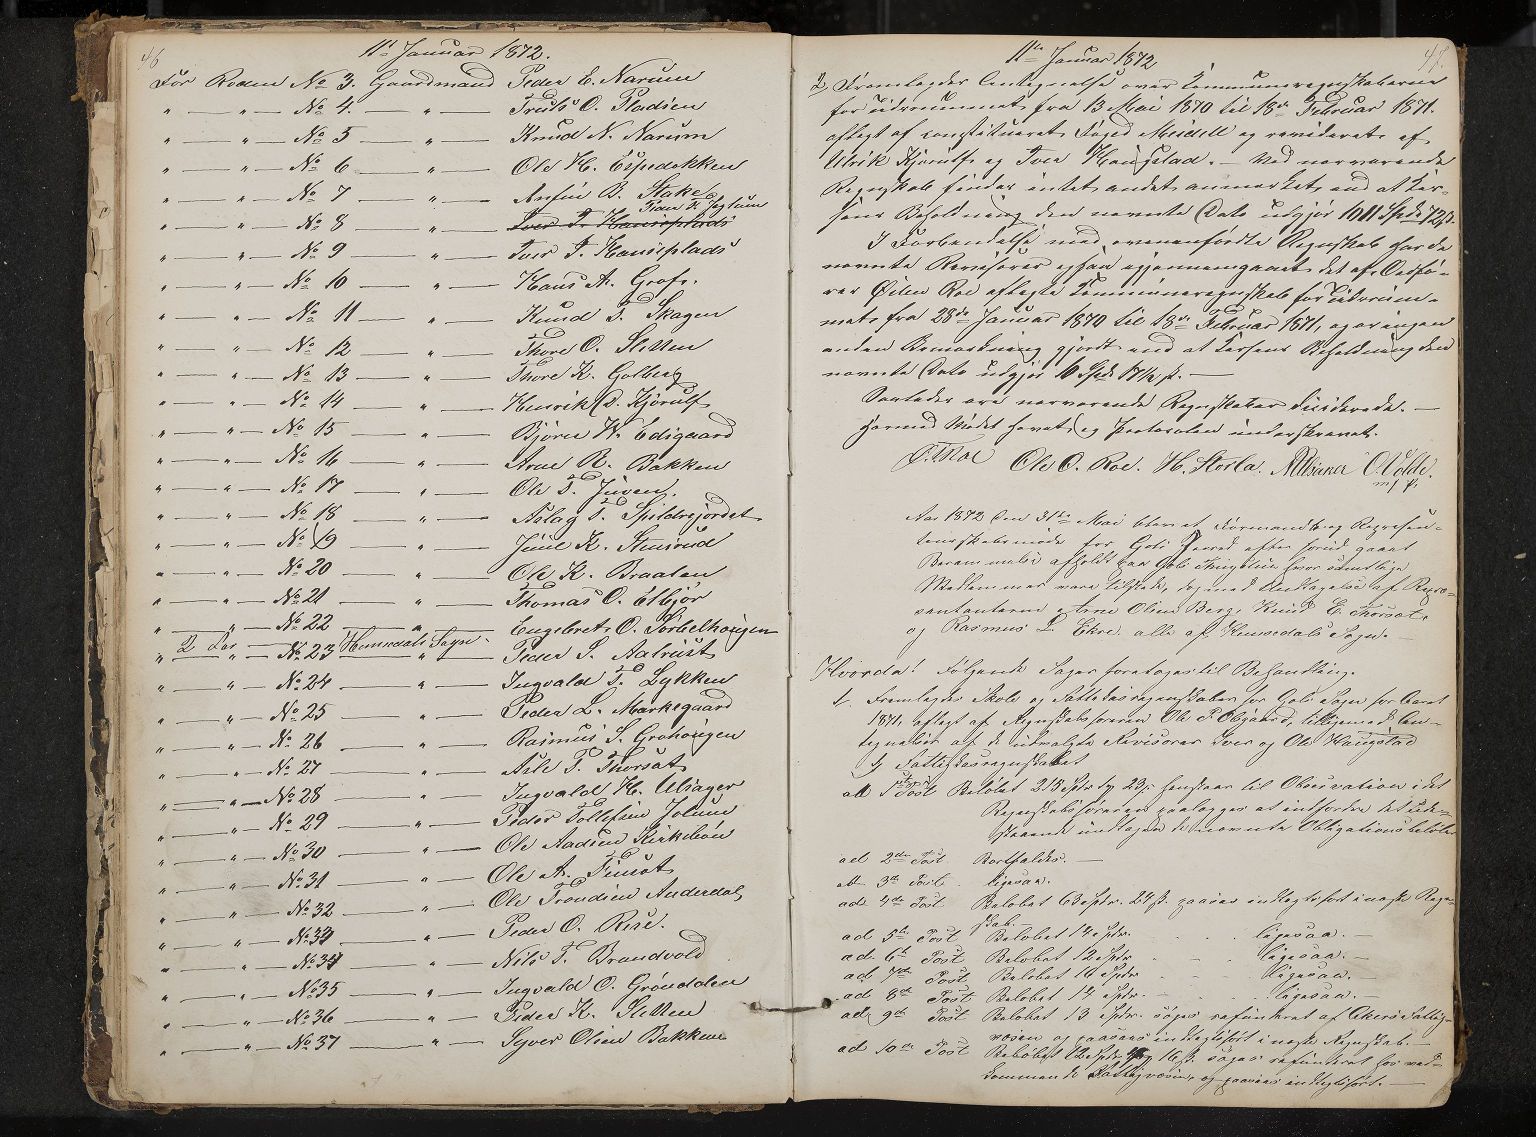 46
11te Januar 1872.
For Roden No 3. Gaardmand Peder E. Narum
" — " — No 4. — " — Truls O. Pladsen
" — " — No 5 — " — Knud N. Narum
" — " — No 6 — " — Ole H. Espedokken
" — " — No 7 — " — Anfin B. Stake
Peder K. Jeglum
" — " — No 8 — " — Iver T. Hanseplads
" — " — No 9 — " — Iver T. Hanseplads
" — " — No 10 — " — Hans A. Grøfs.
" — " — No 11 — " — Knud T. Skagen
" — " — No 12 — " — Thore O. Sletten
" — " — No 13 — " — Thore K. Golberg
" — " — No 14 — " — Henrik D. Kjørulf
" — " — No 15 — " — Bjørn H. Edisgaard
" — " — No 16 — " — Arne R. Bakken
" — " — No 17 — " — Ole T. Juven.
" — " — No 18 — " — Aslag T. Spildrejordet
" — " — No 19 — " — Juul K. Stensrud
" — " — No 20 — " — Ole K. Braaten
" — " — No 21 — " — Thomas O. Elbjør
" — " — No 22 — " — Engebret O. Sørbelhaugen
2 For Hemsedals Sogn.
" — " — No 23 — " — Peder S. Aalrust
" — " — No 24 — " — Ingvald T. Lykken
" — " — No 25 — " — Peder L. Markegaard
" — " — No 26 — " — Rasmus S. Grøhougen
" — " — No 27 — " — Asle T. Thorsat
" — " — No 28 — " — Ingvald H. Ulsager
" — " — No 29 — " — Peder Tollefsen Jolum
" — " — No 30 — " — Ole Aadsen Kirkebøn
" — " — No 31 — " — Ole A. Finset
" — " — No 32 — " — Ole Trondsen Anderdal
" — " — No 33 — " — Peder O. Rise.
" — " — No 34 — " — Nils T. Brandvold
" — " — No 35 — " — Ingvald O. Grøndalen
" — " — No 36 — " — Peder K. Sletten
" — " — No 37 — " — Syver Olsen Bakken
47.
11te Januar 1872
2) Fremlagdes Antegnelse over Kommuneregnskaberne
for Tidsrummet fra 13 Mai 1870 til 18de Februar 1871.
aflagt af constitueret Foged Meidell og revideret af
Ulrik Kjørulf og Iver Haugstad. — Ved nærværende
Regnskab findes intet andet anmærket end at Kas-
sens Beholdning den nævnte Dato udgjør 1011 Spd 72 ß.
I Forbindelse med ovenanførte Regnskab har de
nævnte Revisorer ogsaa gjennemgaaet det af Ordfø-
rer Østen Roe aflagte Kommuneregnskab for Tidsrum-
met fra 28de Januar 1870 til 18de Februar 1871, og er ingen
anden Bemærkning gjordt end at Kassens Beholdning den
nævnte Dato udgjør 16 Spd 17½ ß. —
Saaledes ere nærværende Regnskaber desiderede. —
Hermed Mødet hævet, og Protocolen underskrevet.
Ø. T. Roe Ole O. Roe. H. Storla. O. Volde.
m. f. P.
Aar 1872 den 31te Mai blev et Formands og Repræsen-
tantskabsmøde for Gols Herred efter forud gaaet
Berammelse afholdt paa Gols Thingstue hvor samtlige
Medlemmer vare tilstede, dog med Undtagelse af Repræ-
sentanterne Arne Olsen Berg, Knud E. Thorsat,
og Rasmus L. Ekre alle af Hemsedals Sogn. —
Hvorda! Følgende Sager foretoges til Behandling.
1. Fremlagdes Skole og Fattigregnskaber for Gols Sogn for Aaret
1871, aflagt af Regnskabsføreren Ole P. Øigaard, tilligemed An-
tegnelser af de udvalgte Revisorer Iver og Ole Haugstad
1) Fattigkasregnskabet
ad 1ste Post Beløbet 215 Sptr og 23 ß henstaar til Observation i det
Regnskabsføreren paalægges at indfordre det ude-
staaende undtagen de nævnte Obligationsbeløb
ad 2den Post Bortfaldes. —
ad 3de Post. ligesaa.
ad 4de Post Beløbet 63 Sptr. 24 ß. paavises indtægtsført i næste Regn-
skab.
ad 5te Post Beløbet 14 Sptr. ligesaa. —
ad 6te Post Beløbet 12 Sptr ligesaa. —
ad 7de Post Beløbet 10 Sptr ligesaa. —
ad 8de Post Beløbet 14 Sptr. ligesaa. —
ad 9de Post Beløbet 13 Sptr. søges refunderet af Akers Fattig-
væsen og paavises indtægtsført i næste Regnskab. —
ad 10de Post Beløbet 12 Sptr og 16 ß. søges refunderet hos ved-
kommende Fattigvæsen, og paavises indtægtsført. —